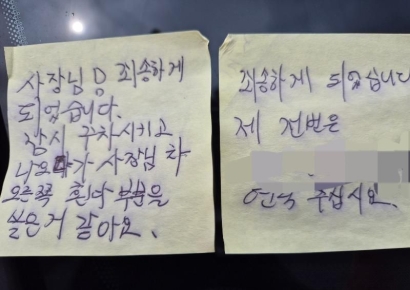 사장님 죄송하게
되었습니다.
잠시 주차시키고
나오다가 사장님 차
오른쪽 휀다 부분을
같아요.
죄송하게 되었습니다
제 전번은
연락 주십시요.